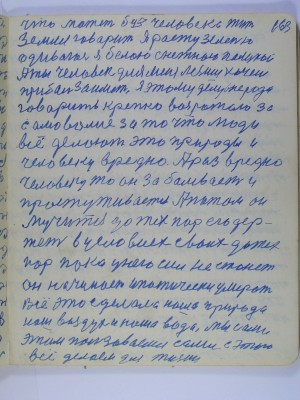 что может без человека жить
Земля говорит я расту зелень
одеваюсь я белою снежною пеленой
А ты человек для меня
прибил Занимат я этому делу природа
говорить крепко возражаю за
самоволие за то что люди
всё делают это природы и
человеку вредно. А раз вредно
человеку то он заболевает и
простуживается А потом он
мучится до тех пор сдер-
жет в условиях своих до тех
пор пока у него сил не станет
он начинает и потихеньку умират
Всё это сделала наша природа
наш воздух и наша вода, мы сами
этим пользовалися сами с этого
всё делаем для жизни